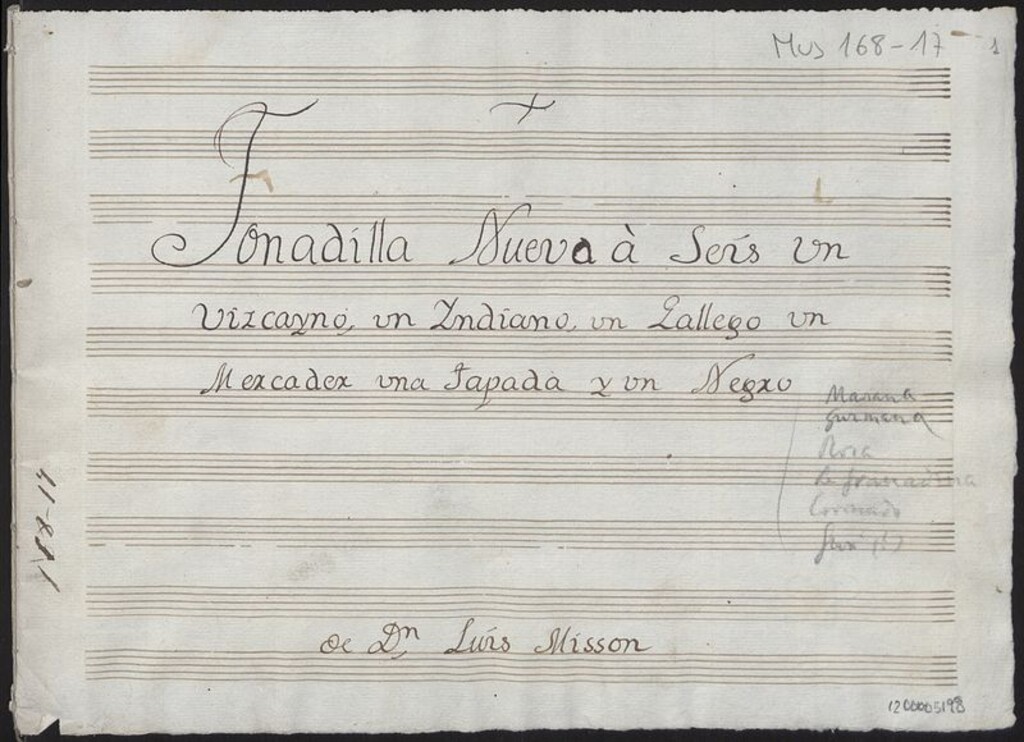 Mus 168-17
1
Tonadilla Nueva à Seis vn
Vizcayno, vn Yndiano, vn Gallego vn
Mercader vna Tapada y vn Negro
Mariana
Guzmana
Rosa
La Granadina
Coronado
168-17
de Dn Luis Misson
1200005198